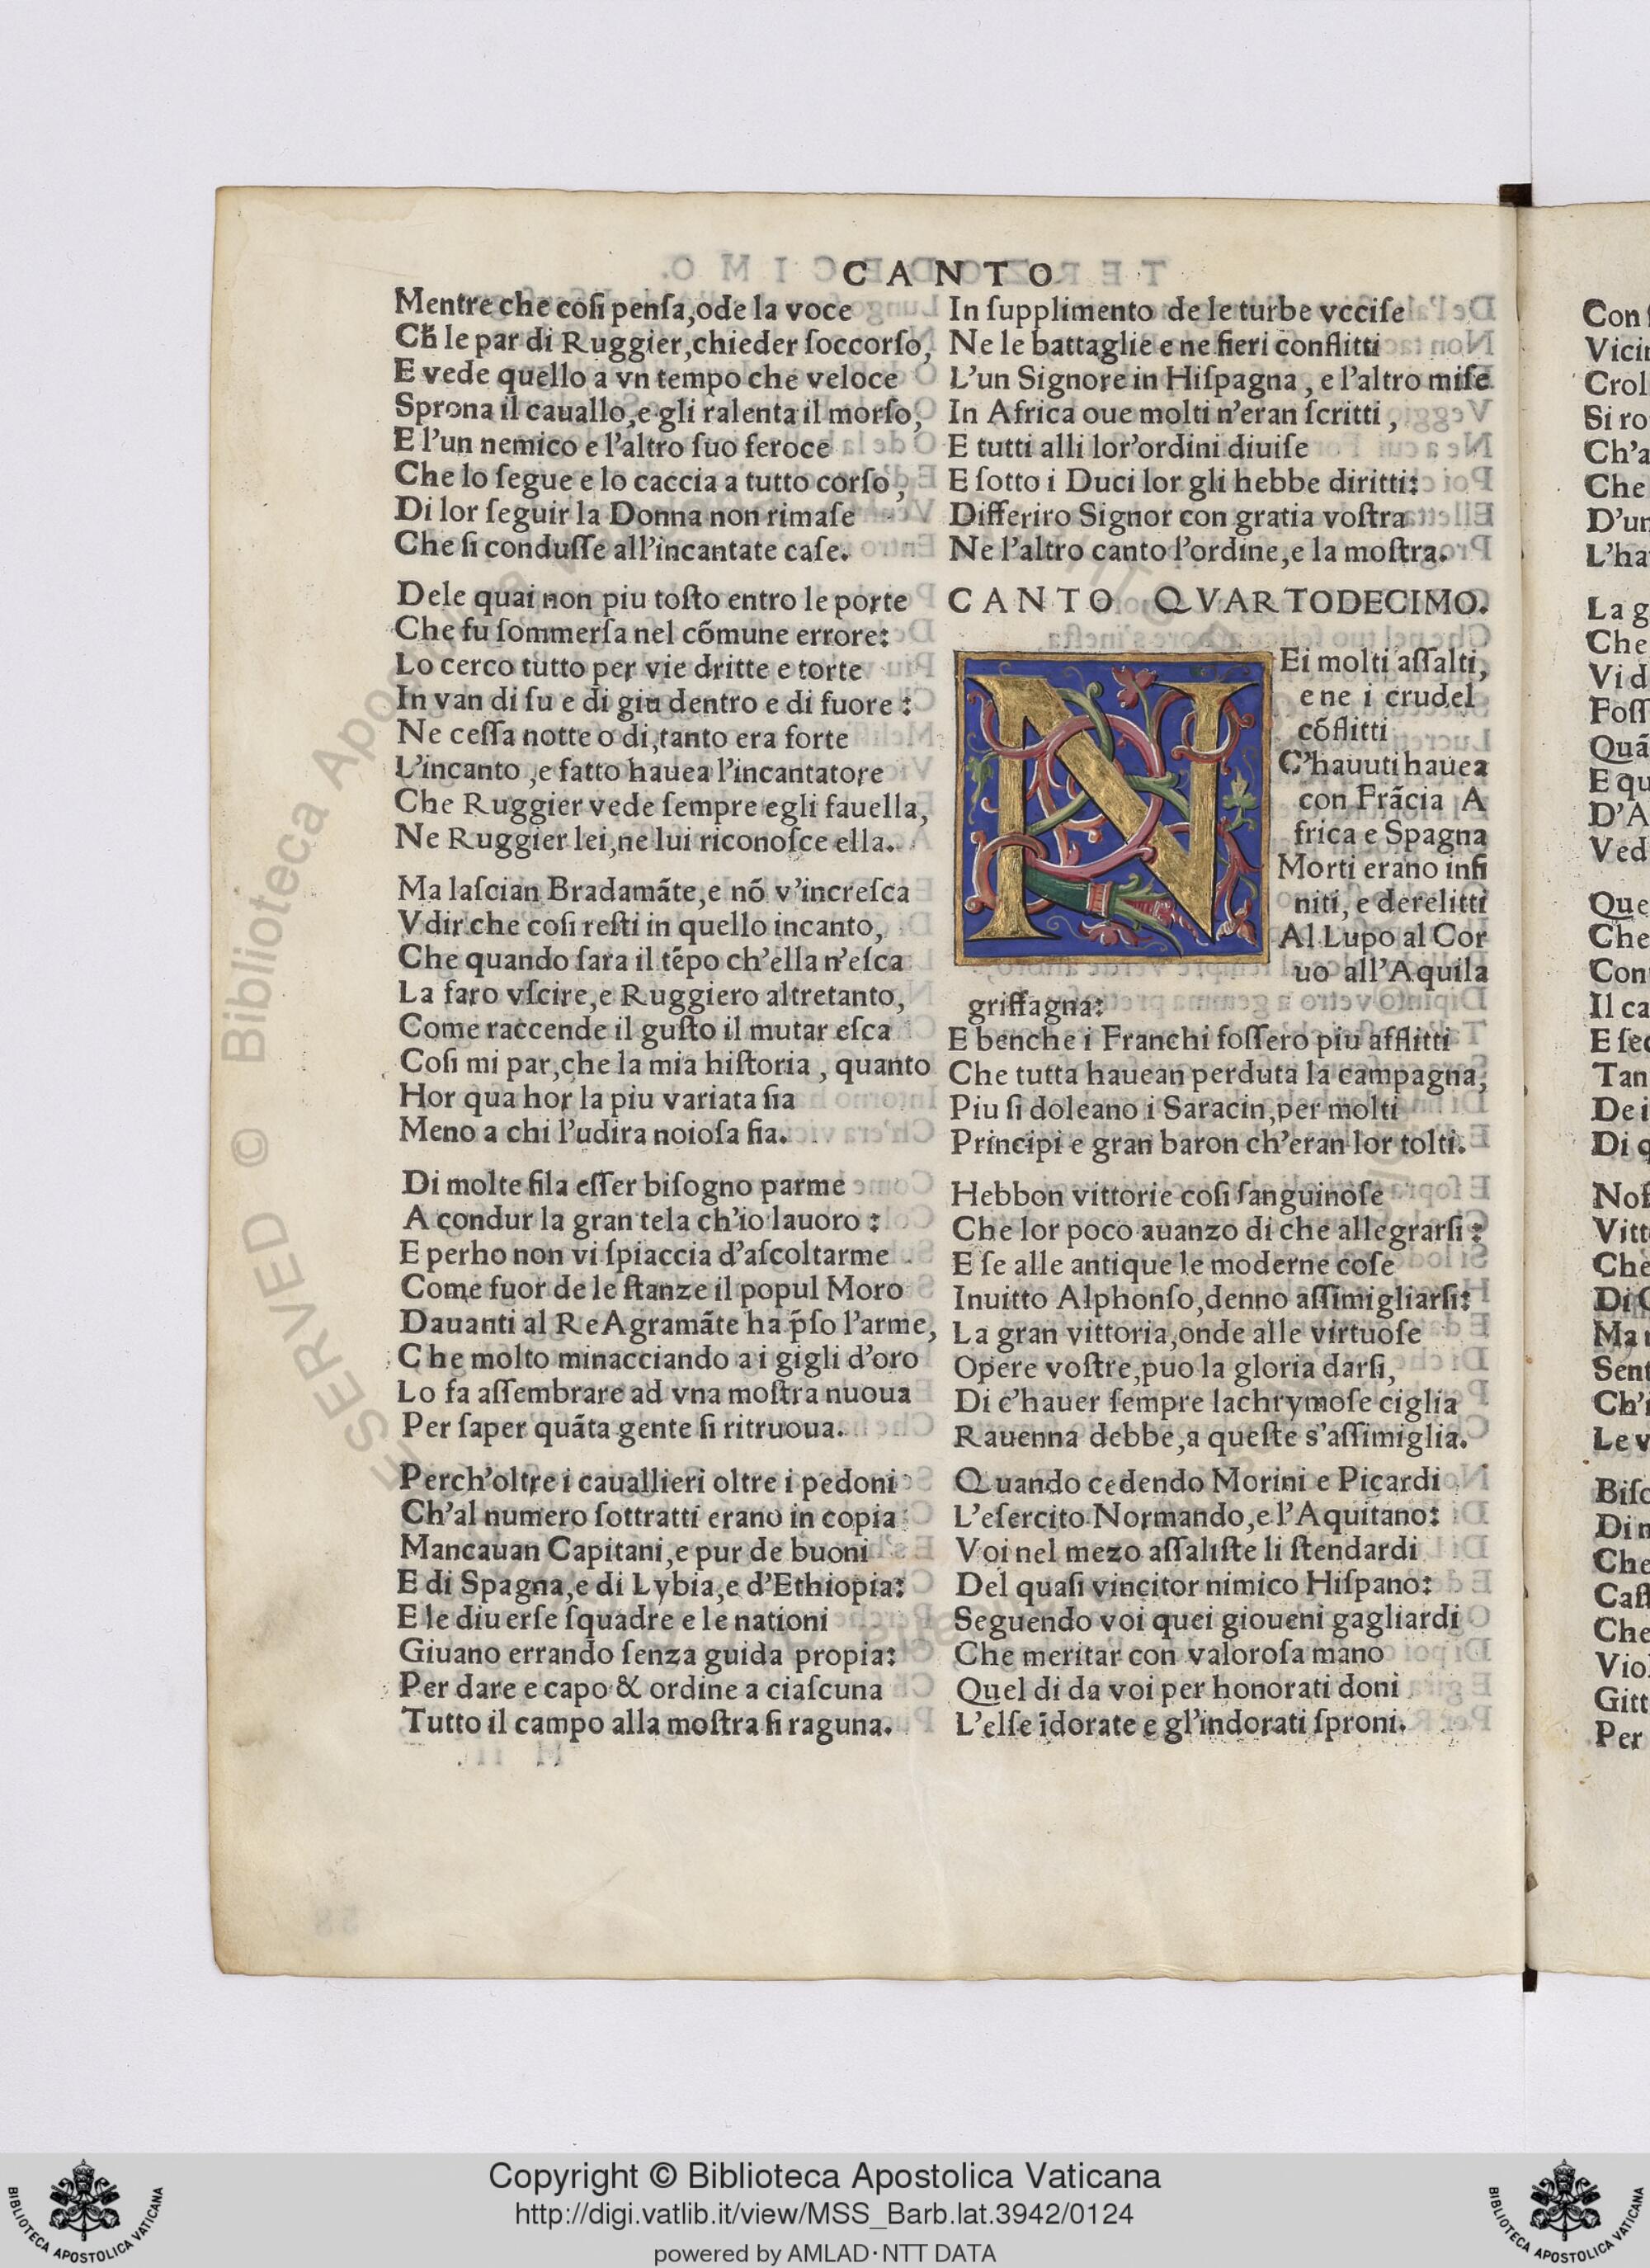 CANTO
Mentre che coſi penſa,ode la voce
Ch̄ le par di Ruggier,chieder ſoccorſo,
E vede quello a vn tempo che veloce
Sprona il cauallo,e gli ralenta il morſo,
E l'un nemico e l'altro ſuo feroce
Che lo ſegue e lo caccia a tutto corſo,
Di lor ſeguir la Donna non rimaſe
Che ſi conduſſe all'incantate caſe.
Dele quai non piu toſto entro le porte
Che fu ſommerſa nel cõmune errore:
Lo cerco tutto per vie dritte e torte
In van di ſu e di giu dentro e di fuore:
Ne ceſſa notte o di,tanto era forte
L'incanto,e fatto hauea l'incantatore
Che Ruggier vede ſempre egli fauella,
Ne Ruggier lei,ne lui riconoſce ella.
Ma laſcian Bradamãte,e nõ v'increſca
Vdir che coſi reſti in quello incanto,
Che quando ſara il tẽpo ch'ella n'eſca
La faro vſcire,e Ruggiero altretanto,
Come raccende il guſto il mutar eſca
Coſi mi par,che la mia hiſtoria, quanto
Hor qua hor la piu variata ſia
Meno a chi l'udira noioſa fia.
Di molte fila eſſer biſogno parme
A condur la gran tela ch'io lauoro:
E perho non vi ſpiaccia d'aſcoltarme
Come fuor de le ſtanze il popul Moro
Dauanti al Re Agramãte ha p̃ſo l'arme,
Che molto minacciando a i gigli d'oro
Lo fa aſſembrare ad vna moſtra nuoua
Per ſaper quãta gente ſi ritruoua.
Perch'oltre i cauallieri oltre i pedoni
Ch'al numero ſottratti erano in copia
Mancauan Capitani,e pur de buoni
E di Spagna,e di Lybia,e d'Ethiopia:
E le diuerſe ſquadre e le nationi
Giuano errando ſenza guida propia:
Per dare e capo & ordine a ciaſcuna
Tutto il campo alla moſtra ſi raguna.
In ſupplimento de le turbe vcciſe
Ne le battaglie e ne fieri conflitti
L'un Signore in Hiſpagna, e l'altro miſe
In Africa oue molti n'eran ſcritti,
E tutti alli lor'ordini diuiſe
E ſotto i Duci lor gli hebbe diritti:
Differiro Signor con gratia voſtra
Ne l'altro canto l'ordine,e la moſtra.
CANTO QVARTODECIMO.
NEi molti aſſalti,
e ne i crudel
cõflitti
C'hauuti hauea
con Frãcia A
frica e Spagna
Morti erano infi
niti, e derelitti
Al Lupo al Cor
uo all'Aquila
griffagna:
E benche i Franchi foſſero piu afflitti
Che tutta hauean perduta la campagna,
Piu ſi doleano i Saracin,per molti
Principi e gran baron ch'eran lor tolti.
Hebbon vittorie coſi ſanguinoſe
Che lor poco auanzo di che allegrarſi:
E ſe alle antique le moderne coſe
Inuitto Alphonſo,denno aſſimigliarſi:
La gran vittoria,onde alle virtuoſe
Opere voſtre,puo la gloria darſi,
Di c'hauer ſempre lachrymoſe ciglia
Rauenna debbe,a queſte s'aſſimiglia.
Quando cedendo Morini e Picardi
L'eſercito Normando,e l'Aquitano:
Voi nel mezo aſſaliſte li ſtendardi
Del quaſi vincitor nimico Hiſpano:
Seguendo voi quei gioueni gagliardi
Che meritar con valoroſa mano
Quel di da voi per honorati doni
L'elſe ĩdorate e gl'indorati ſproni.
Vicin
Crol
Si ro
Ch'a
Che
D'un
L'ha
La g
Che
Vi d
Foſſ
Quã
E qu
D'A
Ved
Que
Che
Con
Il ca
E ſec
Tan
De i
Di q
Noſ
Vitt
Che
Di C
Ma
Sent
Ch'
Le v
Biſo
Di
Che
Caſt
Che
Viol
Gitt
Per
Copyright © Biblioteca Apostolica Vaticana
http://digi.vatlib.it/view/MSS_Barb.lat.3942/0124
powered by AMLAD·NTT DATA
BIBLIOTECA APOSTOLICA VATICANA
BIBLIOTECA APOSTOLICA VATICANA